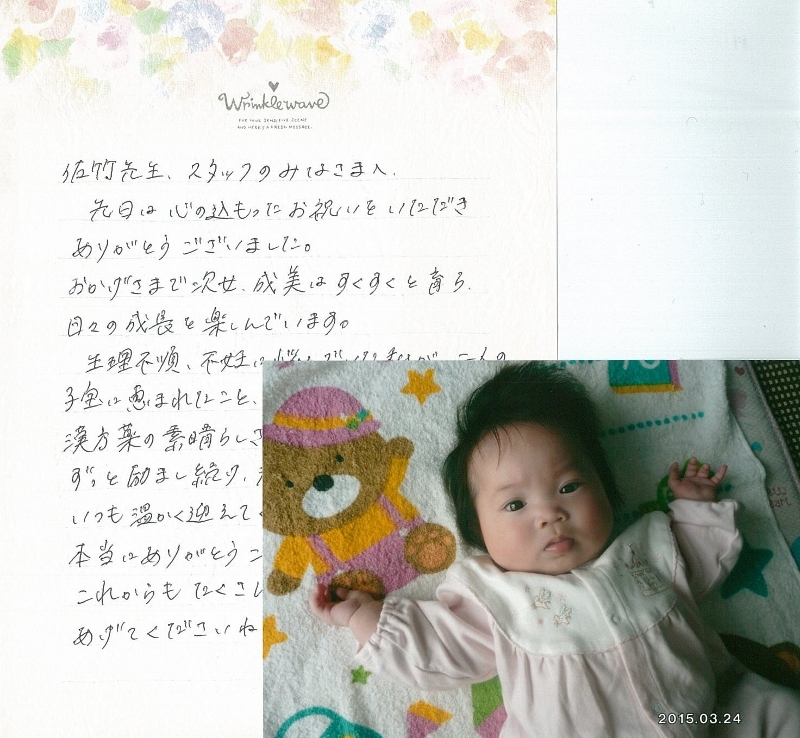 Wrinklewave
FOR YOUR SENSITIVE SCENE
AND HERE'S A FRESH MESSAGE.
佐竹先生、スタッフのみなさまへ
先日は心の込もったお祝いをいただき
ありがとうございました。
おかげさまで次女、成美はすくすくと育ち、
日々の成長を楽しんでいます。
生理不順、不妊に悩んでいた私が、二人の
子宝に恵まれたこと、
漢方薬の素晴らしさ
ずっと励まし続け、
いつも温かく迎えて
本当にありがとうご
これからもたくさん
あげてくださいね
2015.03.24